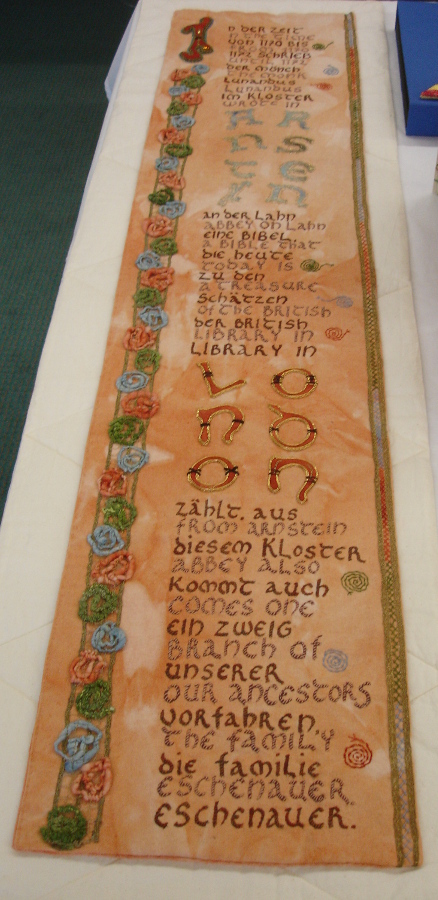 In der Zeit
n the time
von 1170 bis
until 1172
der Mönch
the monk
Lunandus
Lunandus
im Kloster
wrote in
AR
ns
te
in
an der Lahn
abbey on Lahn
eine Bibel
a Bible that
die heute
today is
zu den
a treasure
Schätzen
of the British
der British
Library in
Library in
Lo
nd
on
zählt. aus
from Arnstein
diesem Kloster
Abbey also
kommt auch
comes one
ein Zweig
branch of
unserer
our ancestors
Vorfahren
the family
die Familie
Eschenauer.
Eschenauer.